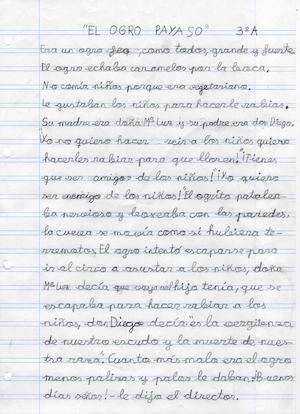 "EL OGRO PAYASO" 3º A
Era un ogro feo, como todos, grande y fuerte.
El ogro echaba caramelos por la boca.
No comía niños porque era vegetariano.
Le gustaban los niños para hacerle rabiar.
Su madre era doña Mª Luz y su padre era don Diego.
"Yo no quiero hacer reir a los niños quiero
hacerles rabiar para que lloren." "¡Tienes
que ser amigo de los niños!" "¡Yo quiero
ser enemigo de los niños!" El ogrito patalea-
ba nervioso y boxeaba con las paredes,
la cueva se movía como si hubiera te-
rremotos. El ogro intentó escaparse para
ir al circo a asustar a los niños, doña
Mª Luz decía que vaya hijo tenía, que se
escapaba para hacer rabiar a los
niños, don Diego decía: "es la vergüenza
de nuestro escudo y la muerte de nues-
tra raza". Cuanto más malo era el ogro
menos palizas y palos le daban. "¡B uenos
días seños! - le dijo el director.